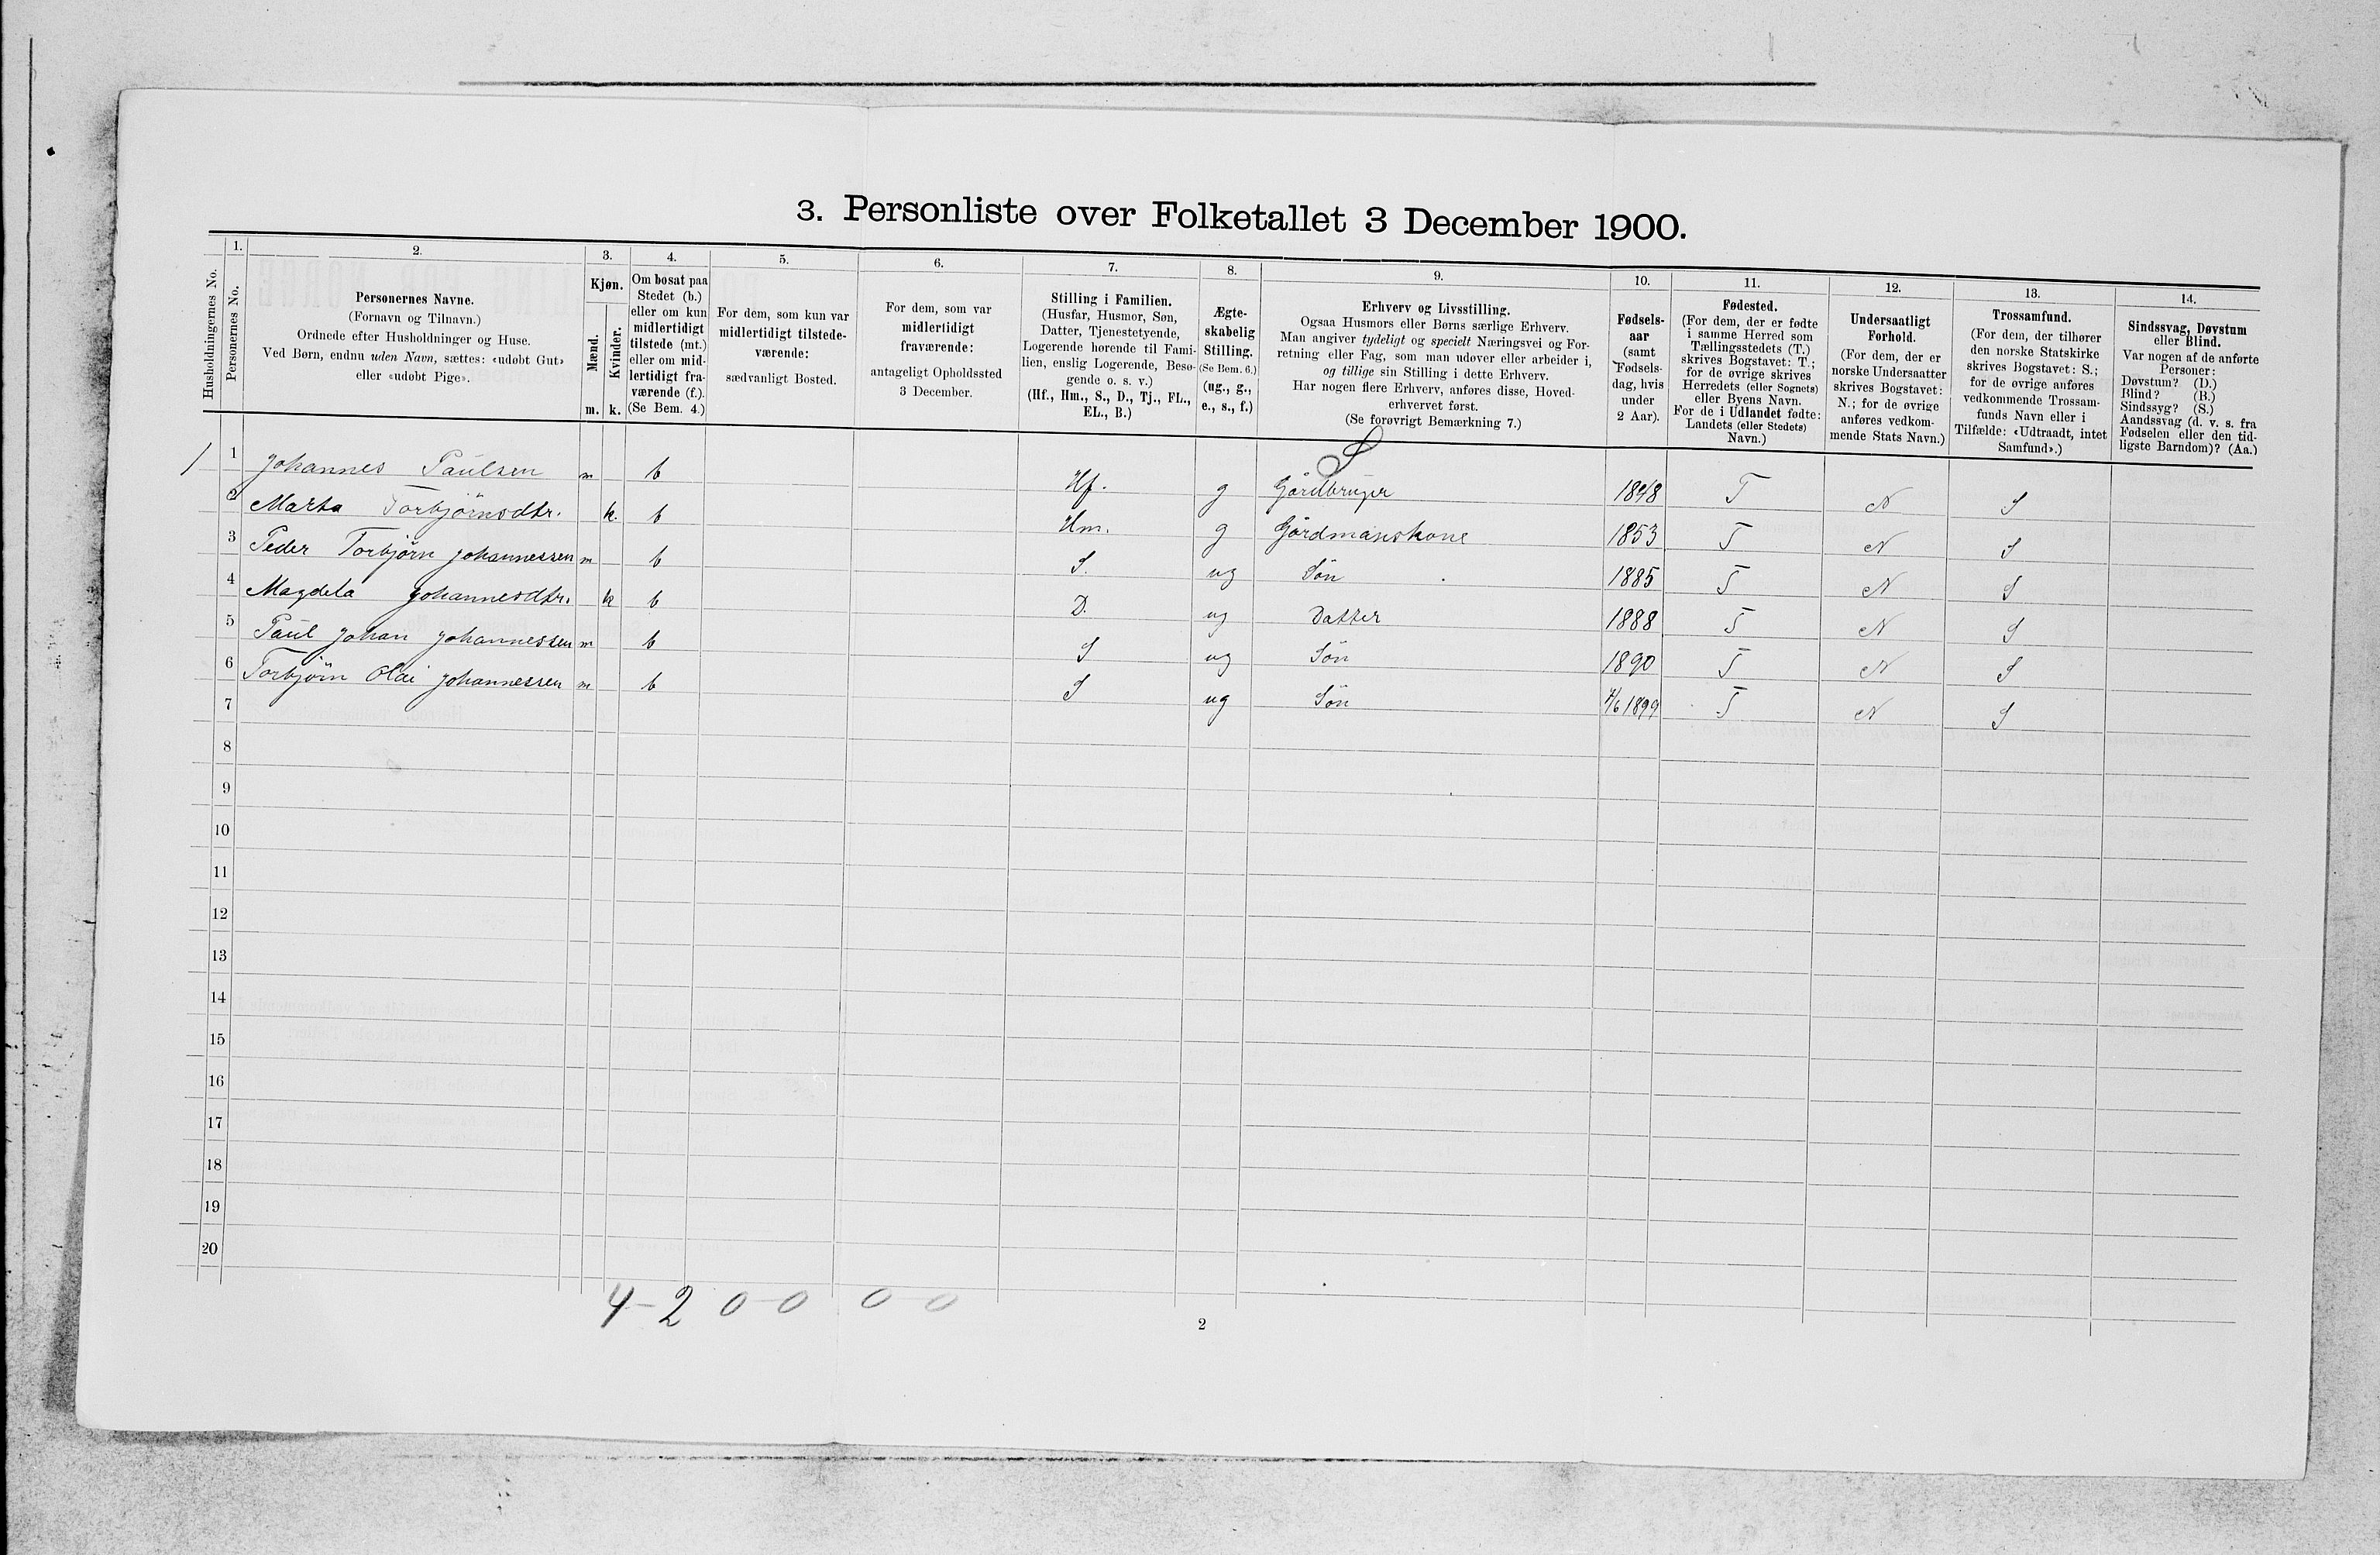 3. Personliste over Folketallet 3 December 1900.
1. 2. 3. 4. 5. 6. 7. 8. 9. 10. 11. 12. 13. 14.
Husholdningernes No.
Personernes No.
Personernes Navne.
(Fornavn og Tilnavn.)
Ordnede efter Husholdninger og Huse.
Ved Børn, endnu uden Navn, sættes: «udøbt Gut»
eller «udøbt Pige».
Kjøn.
Mænd.
Kvinder.
m. k.
Om bosat paa
Stedet (b.)
eller om kun
midlertidigt
tilstede (mt.)
eller om mid-
lertidigt fra-
værende (f.).
(Se Bem. 4.)
For dem, som kun var
midlertidigt tilstede-
værende:
sædvanligt Bosted.
For dem, som var
midlertidigt
fraværende:
antageligt Opholdssted
3 December.
Stilling i Familien.
(Husfar, Husmor, Søn,
Datter, Tjenestetyende,
Logerende hørende til Fami-
lien, enslig Logerende, Besø-
gende o. s. v.)
(Hf., Hm., S., D., Tj., FL.,
EL., B.)
Ægte-
skabelig
Stilling.
(Se Bem. 6.)
(ug., g.,
e., s., f.)
Erhverv og Livsstilling.
Ogsaa Husmors eller Børns særlige Erhverv.
Man angiver tydeligt og specielt Næringsvei og For-
retning eller Fag, som man udøver eller arbeider i,
og tillige sin Stilling i dette Erhverv.
Har nogen flere Erhverv, anføres disse, Hoved-
erhvervet først.
(Se forøvrigt Bemærkning 7.)
Fødsels-
aar
(samt
Fødsels-
dag, hvis
under
2 Aar).
Fødested.
(For dem, der er fødte
i samme Herred som
Tællingsstedets (T.)
skrives Bogstavet: T.;
for de øvrige skrives
Herredets (eller Sognets)
eller Byens Navn.
For de i Udlandet fødte:
Landets (eller Stedets)
Navn.)
Undersaatligt
Forhold.
(For dem, der er
norske Undersaatter
skrives Bogstavet:
N.; for de øvrige
anføres vedkom-
mende Stats Navn.)
Trossamfund.
(For dem, der tilhører
den norske Statskirke
skrives Bogstavet: S.;
for de øvrige anføres
vedkommende Trossam-
funds Navn eller i
Tilfælde: «Udtraadt, intet
Samfund».)
Sindssvag, Døvstum
eller Blind.
Var nogen af de anførte
Personer:
Døvstum? (D.)
Blind? (B.)
Sindssyg? (S.)
Aandssvag (d. v. s. fra
Fødselen eller den tid-
ligste Barndom)? (Aa.)
S
1 1 Johannes Paulsen m b Hf. g Gårdbruger 1848 T N S
2 Marta Torbjörnsdtr. k. b Hm. g Gårdmanskone 1853 T N S
3 Peder Torbjörn Johannessen m b S. ug Sön 1885 T N S
4 Magdela Johannesdtr. k b D. ug Datter 1888 T N S
5 Paul Johan Johannessen m b S ug Sön 1890 T N S
6 Torbjörn Olai Johannessen m b S ug Sön 4/6 1899 T N S
7
8
9
10
11
12
13
14
15
16
17
18
19
20
4-2 0-0 0-0
2